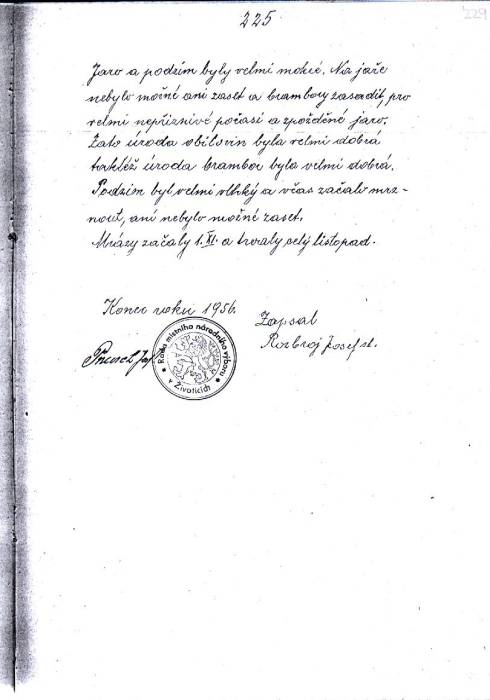 225
229
Jaro a podzim byly velmi mokré. Na jaře
nebylo možné ani zaset a brambory zasadit, pro
velmi nepříznivé počasí a zpožděné jaro.
Zato úroda obilovin byla velmi dobrá
taktéž úroda brambor byla velmi dobrá.
Podzim byl velmi vlhký a včas začalo mrz-
nout, ani nebylo možné zaset.
Mrázy začaly 1. XI. a trvaly celý listopad.
Konec roku 1956.
Zapsal
Rozbroj Josef st.
Rada místního národního výboru
v Životicích